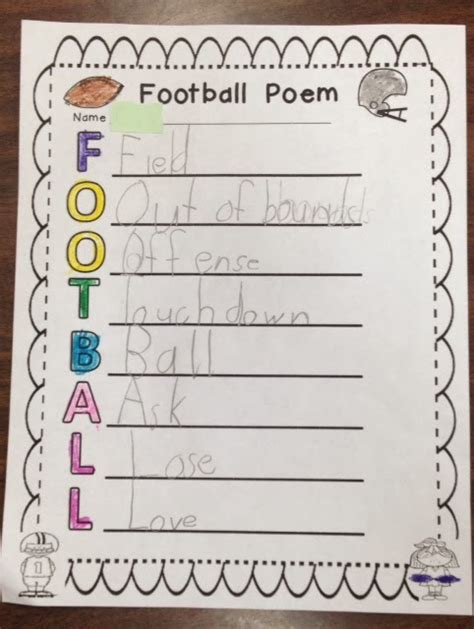 Football Poem
Name
F Field
O Out of bounds
O Offense
T Touchdown
B Ball
A Ask
L Lose
L Love
1